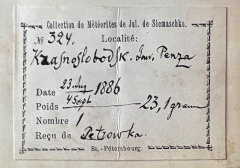 Collection de Météorites de Jul. de Siemaschko.
Localité:
№ 324.
Krasnoslobodsk. Gouv. Penza
Date 23 Aug / 4 Sept 1886
Poids 23,1 gram
Nombre 1
Reçu de Petrowka.
St.-Pétersbourg.